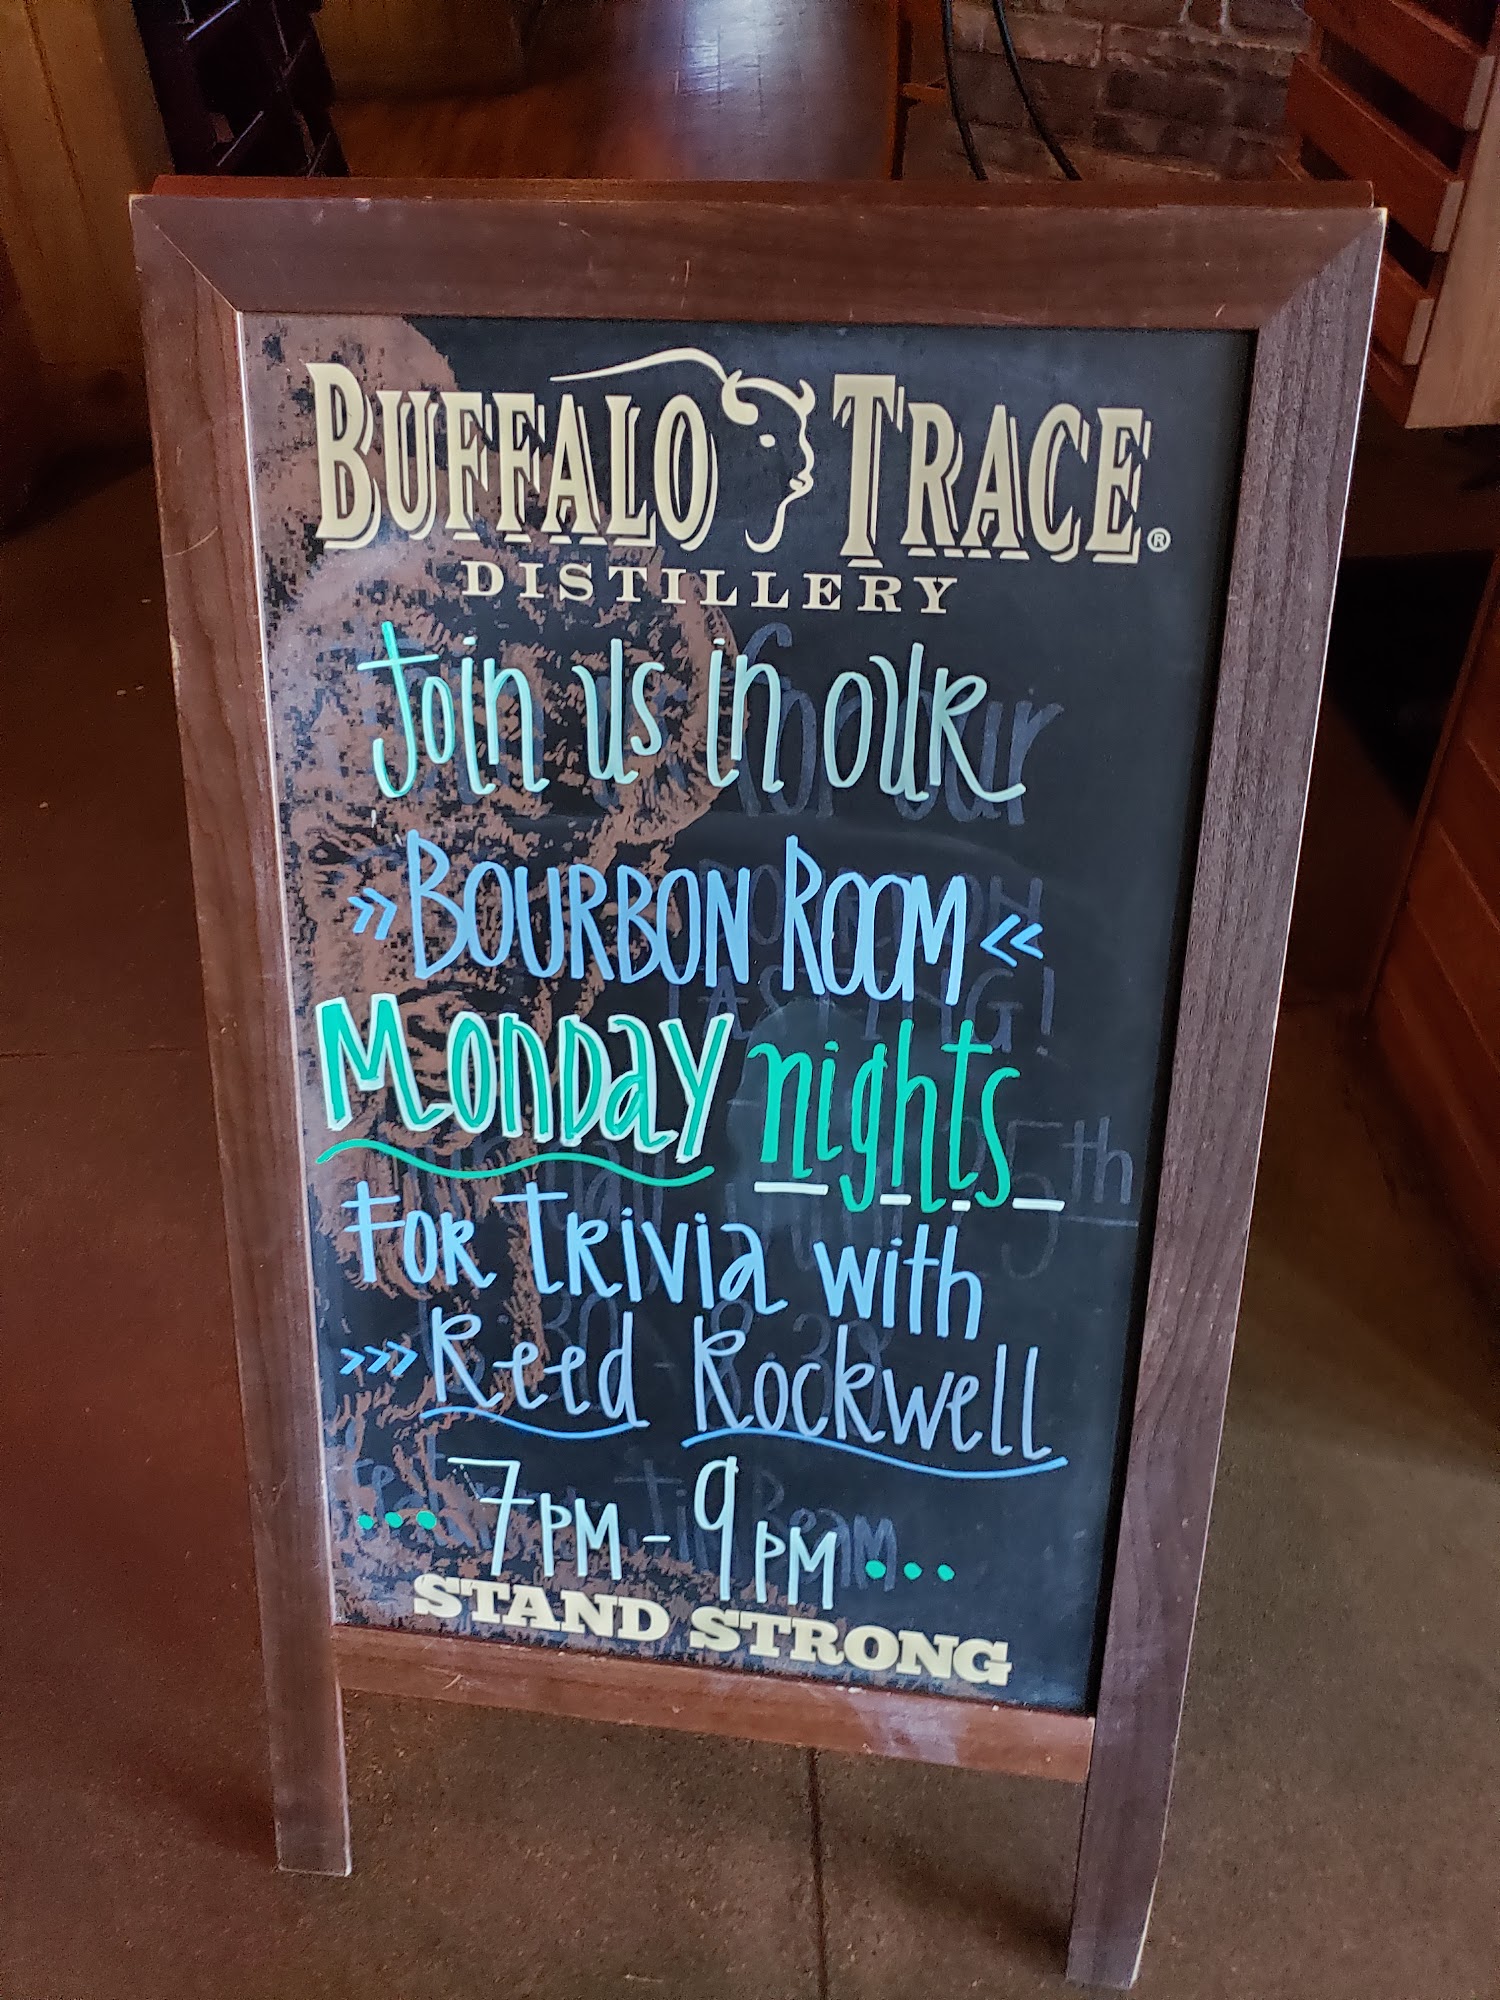 BUFFALO TRACE®
DISTILLERY
Join us in our
»BOURBON ROOM«
Monday nights
For Trivia with
>>> Reed Rockwell
... 7PM - 9PM ...
STAND STRONG